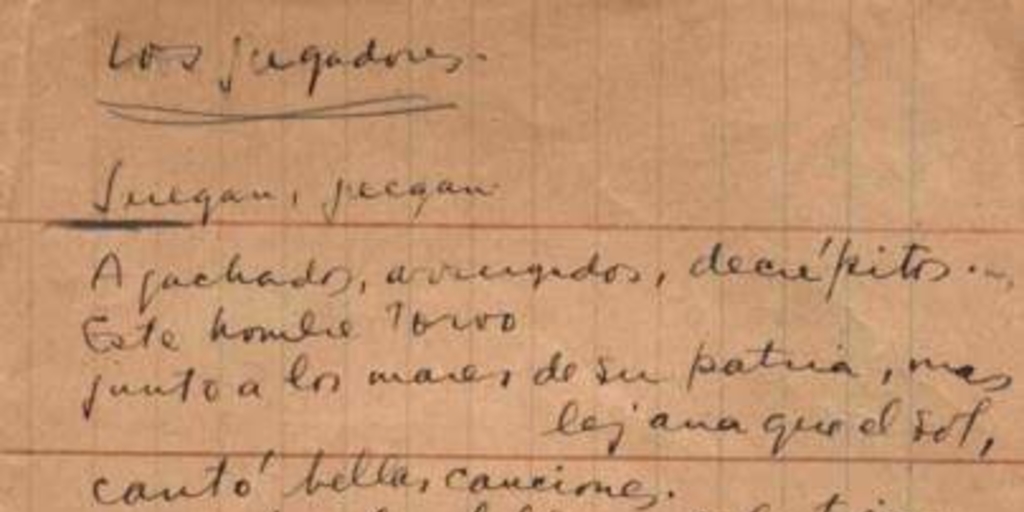 Los jugadores.
Juegan, juegan
Agachados, arrugados, decrépitos...
Este hombre torvo
junto a los mares de su patria, mas
lejana que el sol,
cantó bellas canciones.